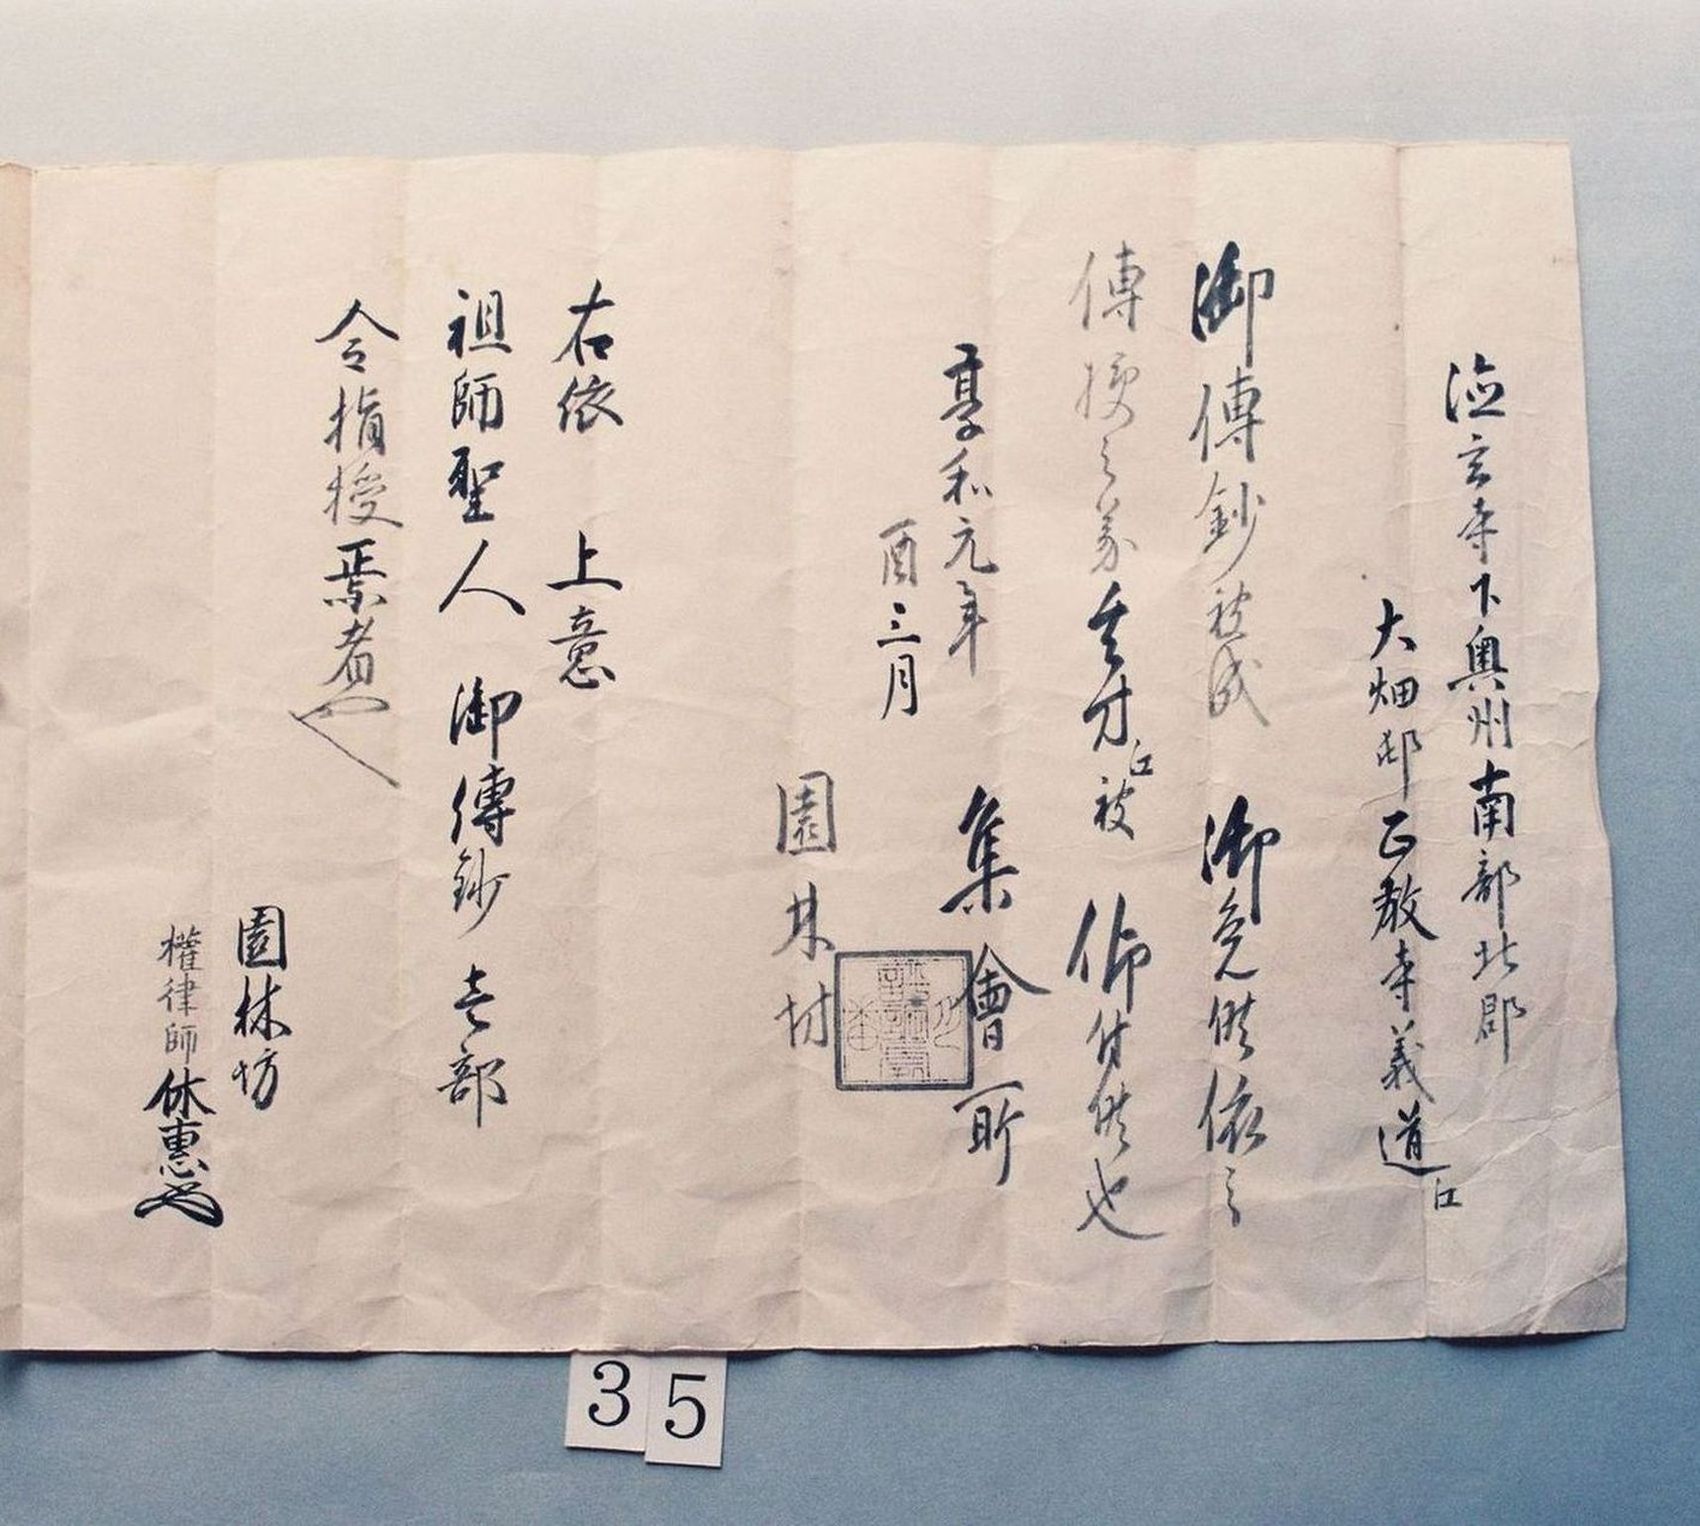 澄玄寺下奥州南部北郡
大畑邨正教寺義道江
御傳鈔被成 御免候依之
傳授之義其方江被 仰付候也
享和元年
酉三月
集會所
園林坊
右依 上意
祖師聖人 御傳鈔 壱部
令指授焉者也
園林坊
權律師休惠
35